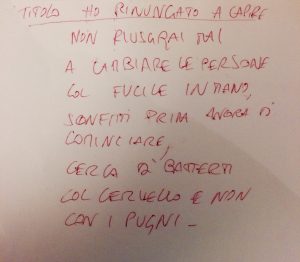 TITOLO HO RINUNCIATO A CAPIRE
NON RIUSCIRAI MAI
A CAMBIARE LE PERSONE
COL FUCILE IN MANO,
SONFITTI PRIMA ANCORA DI
COMINCIARE,
CERCA DI BATTERTI
COL CERVELLO E NON
CON I PUGNI -